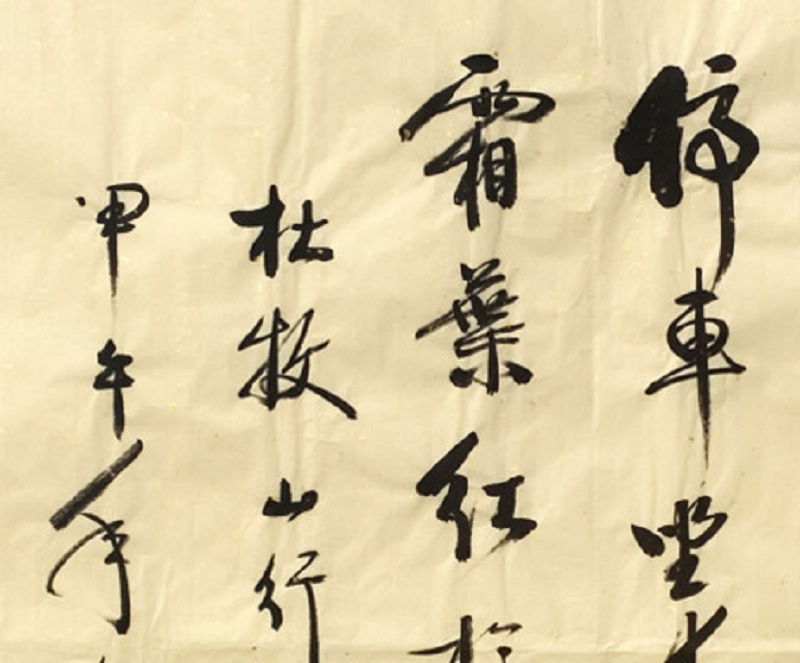 停車坐
霜葉紅於
杜牧山行
甲午年